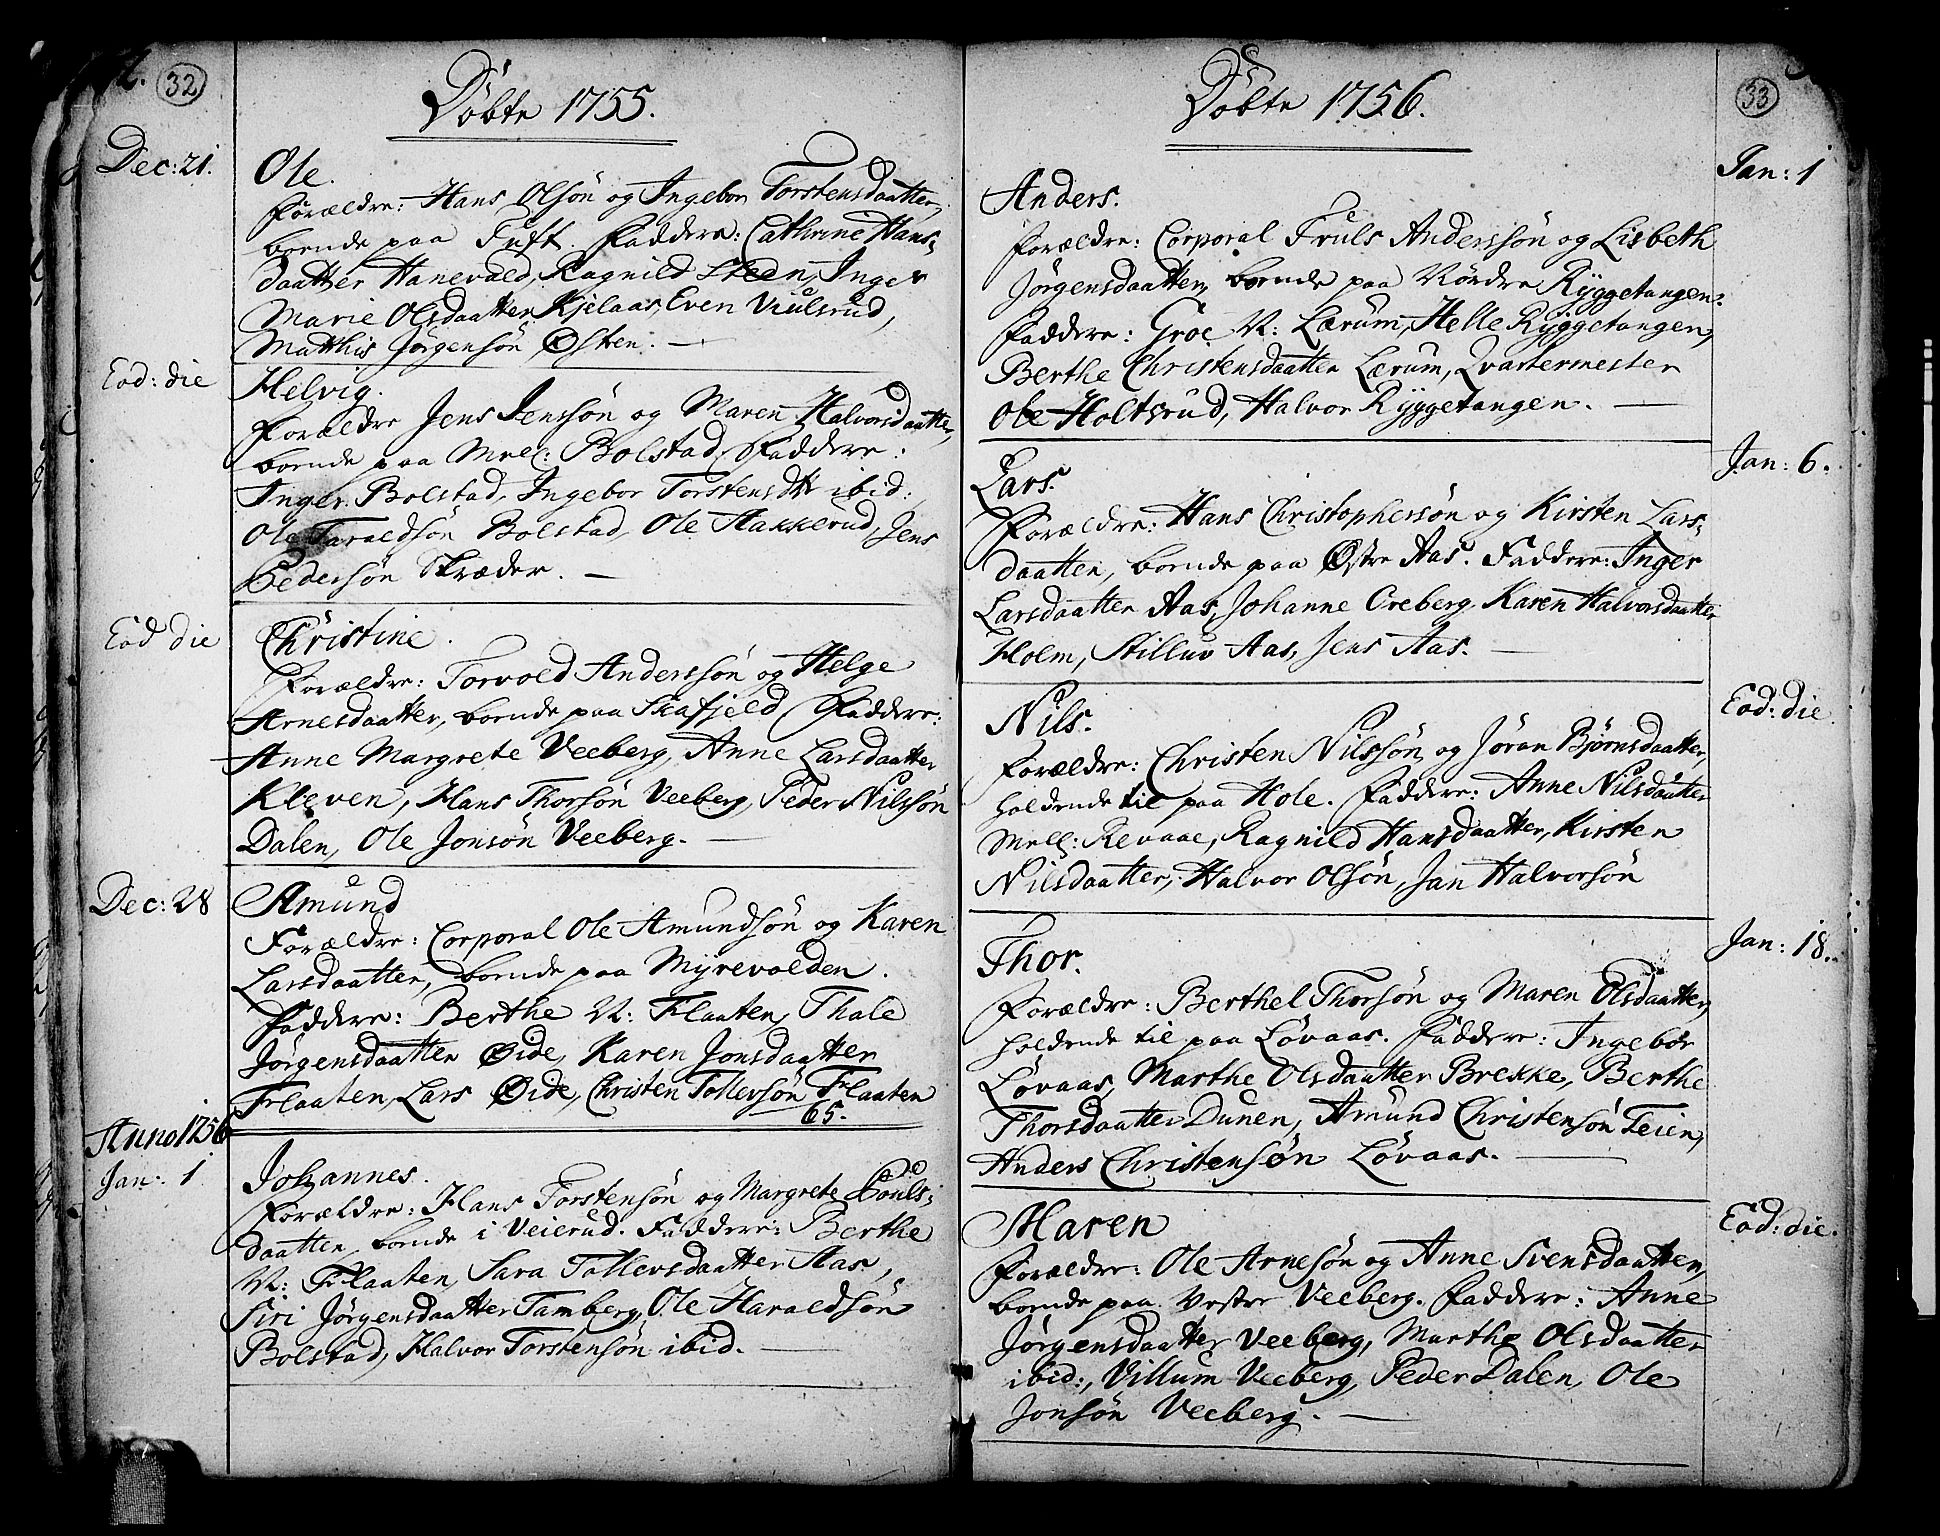 32
Döbte 1755.
Dec: 21.
Ole.
Forældre: Hans Olsön og Ingebor Torstensdaatter,
boende paa Tuft. Faddere: Cathrine Hans-
daatter Hanevald, Ragnild Steen, Inger
Marie Olsdaatter Kjelaas, Even Viulsrud,
Matthis Jörgensön Østen. —
Eod: die
Helvig.
Forældre Jens Jenssön og Maren Halvorsdaatter,
boende paa Mell: Bolstad. Faddere:
Inger Bolstad, Ingebor Torstensdtr ibid:
Ole Haraldsön Bolstad, Ole Hakkerud, Jens
Pedersön Skræder. —
Eod die
Christine.
Forældre: Torvold Anderssön og Helge
Arnesdaatter, boende paa Skafjeld Faddere:
Anne Margrete Veeberg, Anne Larsdaatter
Kleven, Hans Thorsön Veeberg, Peder Nilssön
Dalen, Ole Jonsön Veeberg. —
Dec: 28
Amund
Forældre: Corporal Ole Amundsön og Karen
Larsdaatter, boende paa Myrevolden.
Faddere: Berthe N: Flaaten, Thale
Jörgensdaatter Øide, Karen Jonsdaatter
Flaaten, Lars Øide, Christen Tollevsön Flaaten
65.
Anno 1756
Jan: 1
Johannes.
Forældre: Hans Torstensön og Margrete Pouls-
daatter, boende i Veierud. Faddere: Berthe
N: Flaaten, Sara Tollevsdaatter Aas,
Siri Jörgensdaatter Tamberg, Ole Haraldsön
Bolstad, Halvor Torstensön ibid. —
33
Döbte 1756.
Jan: 1
Anders.
Forældre: Corporal Truls Anderssön og Lisbeth
Jörgensdaatter, boende paa Nördre Ryggetangen.
Faddere: Groe N: Lærum, Helle Ryggetangen,
Berthe Christensdaatter Lærum, Qvartermester
Ole Holtsrud, Halvor Ryggetangen. —
Jan: 6.
Lars.
Forældre: Hans Christophersön og Kirsten Lars-
daatter, boende paa Østre Aas. Faddere: Inger
Larsdaatter Aas, Johanne Oreberg, Karen Halvorsdaatter
Holm, Stilluv Aas, Jens Aas. —
Eod: die
Nils.
Forældre: Christen Nilssön og Jöran Björnsdaatter,
holdende til paa Hole. Faddere: Anne Nilsdaatter
Mell: Revaae, Ragnild Hansdaatter, Kirsten
Nilsdaatter, Halvor Olsön, Jan Halvorsön
Jan: 18.
Thor.
Forældre: Berthel Thorsön og Maren Olsdaatter,
holdende til paa Lövaas. Faddere: Ingebor
Lövaas, Marthe Olsdaatter Brekke, Berthe
Thorsdaatter Dunen, Amund Christensön Teien,
Anders Christensön Lövaas. —
Eod: die.
Maren
Forældre: Ole Arnesön og Anne Svensdaatter,
boende paa Vestre Veeberg. Faddere: Anne
Jörgensdaatter Veeberg, Marthe Olsdaatter
ibid:, Villum Veeberg, Peder Dalen, Ole
Jonsön Veeberg. —